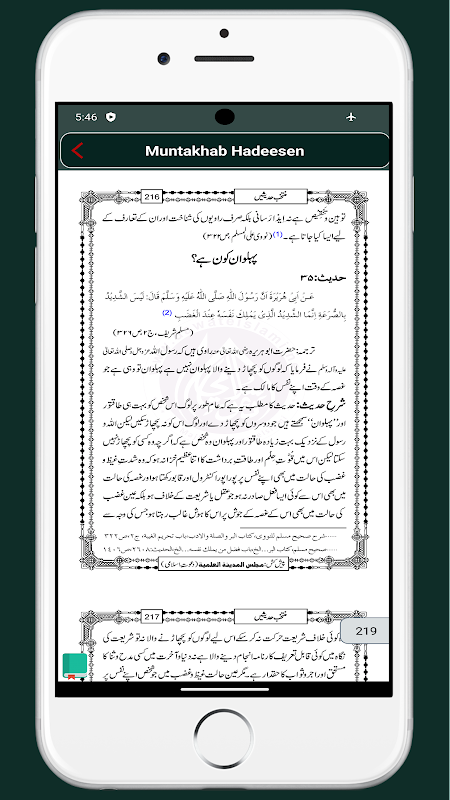 5:46
Muntakhab Hadeesen
216
منتخب حدیثیں
توہین و تنقیص ہے نہ ایذا رسانی بلکہ صرف راویوں کی شناخت اور ان کے تعارف کے
لیے ایسا کیا جاتا ہے۔ (1) (نووی علی المسلم ص ۳۲۲)
پہلوان کون ہے؟
حدیث: ۳۵
عَنْ اَبِیْ هُرَيْرَةَ اَنَّ رَسُولَ اللّٰهِ صَلَّى اللّٰهُ عَلَيْهِ وَسَلَّمَ قَالَ: لَيْسَ الشَّدِيْدُ
بِالصُّرَعَةِ اِنَّمَا الشَّدِيْدُ الَّذِىْ يَمْلِكُ نَفْسَهُ عِنْدَ الْغَضَبِ (2)
(مسلم شریف، ج ۲، ص ۳۲۶)
ترجمہ: حضرت ابوہریرہ رضی اللہ تعالیٰ عنہ راوی ہیں کہ رسول اللہ عزوجل وصلی اللہ تعالیٰ
علیہ والہ وسلم نے فرمایا کہ لوگوں کو پچھاڑ دینے والا پہلوان نہیں ہے پہلوان تو وہی ہے جو
غصہ کے وقت اپنے نفس کا مالک ہے۔
شرح حدیث: حدیث کا مطلب یہ ہے کہ عام طور پر لوگ اس شخص کو بہت ہی طاقتور
اور "پہلوان" سمجھتے ہیں جو دوسروں کو پچھاڑ دے اور لوگ اس کو نہ پچھاڑ سکیں لیکن اللہ و
رسول کے نزدیک بہت زیادہ طاقتور اور پہلوان وہ شخص ہے کہ اگرچہ وہ کسی کو پچھاڑ نہیں
سکتا لیکن اس میں قوتِ حلم اور طاقتِ برداشت کا اتنا عظیم خزانہ ہو کہ وہ شدت غیظ و
غضب کی حالت میں بھی اپنے نفس پر پورا پورا کنٹرول اور قابو رکھتا ہو اور غصہ کی حالت
میں بھی اس سے کوئی ایسا فعل صادر نہ ہو جو عقل یا شریعت کے خلاف ہو بلکہ عین غضب
کی حالت میں بھی اس کے غصہ کے جوش پر اس کا ہوش غالب رہتا ہو جس کی وجہ سے
شرح صحیح مسلم للنووی، کتاب البر والصلة والادب، باب تحریم الغیبة، ج ۲، ص ۳۲۲
صحیح مسلم، کتاب البر...الخ، باب فضل من یملک نفسه...الخ، الحدیث: ۲۶۰۸، ص ۱۴۰۶
پیش کش: مجلس المدینة العلمیة (دعوت اسلامی)
217
منتخب حدیثیں
کوئی خلاف شریعت حرکت نہ کر سکے اس لیے لوگوں کو پچھاڑنے والا نہ تو شریعت کی
219
نگاہ میں کوئی قابل تعریف کارنامہ انجام دینے والا ہے نہ دنیا و آخرت میں کسی مدح و ثنا کا
مستحق اور اجر و ثواب کا حقدار ہے۔ مگر عین حالت غیظ و غضب میں جو شخص اپنے نفس پر